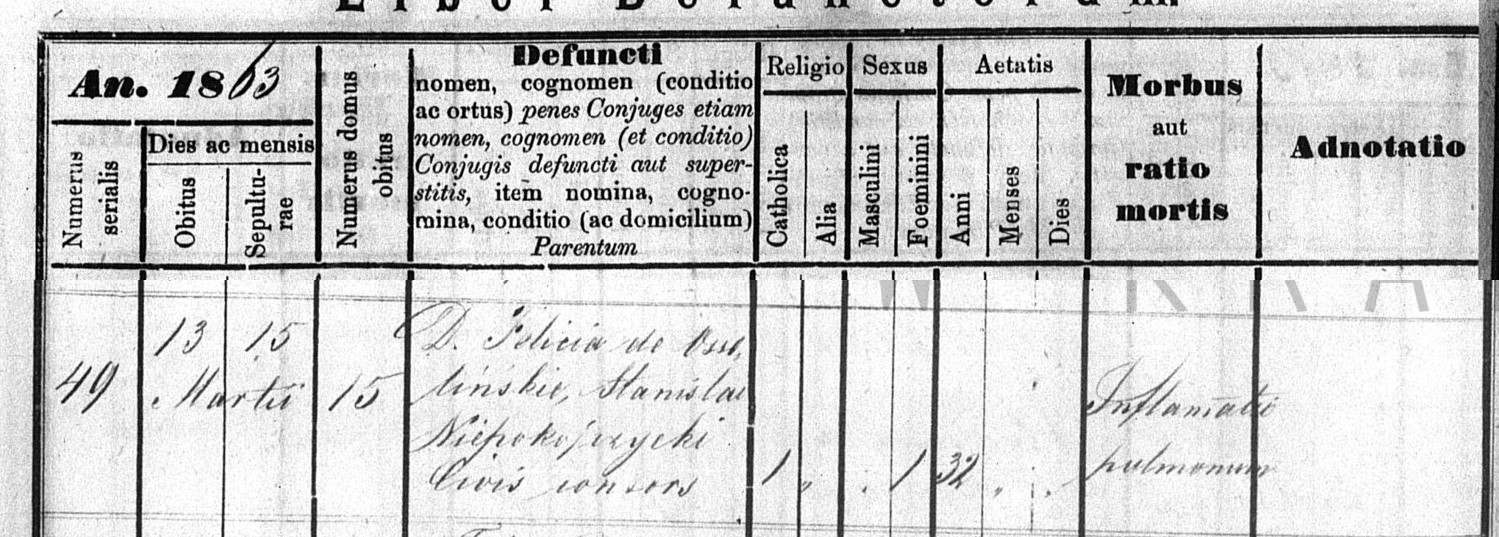 Liber Defunctorum.
An. 1863
Numerus serialis
Dies ac mensis
Obitus
Sepultu-
rae
Numerus domus
obitus
Defuncti
nomen, cognomen (conditio
ac ortus) penes Conjuges etiam
nomen, cognomen (et conditio)
Conjugis defuncti aut super-
stitis, item nomina, cogno-
mina, conditio (ac domicilium)
Parentum
Religio
Catholica
Alia
Sexus
Masculini
Foeminini
Aetatis
Anni
Menses
Dies
Morbus
aut
ratio
mortis
Adnotatio
49
13 15
Martii
15
D. Felicia de Osso,
lińskie, Stanislai
Niepokojczycki
Civis consors
1 „ . 1 32 „ .
Inflamatio
pulmonum